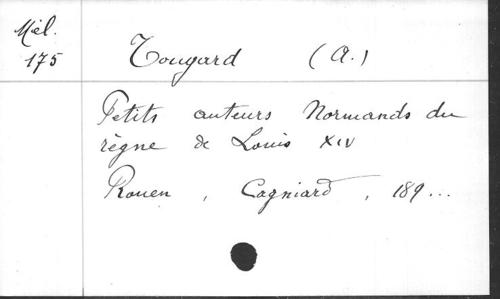 Mél.
175
Tougard (A.)
Petits auteurs Normands du
règne de Louis XIV
Rouen, Cagniard, 189...